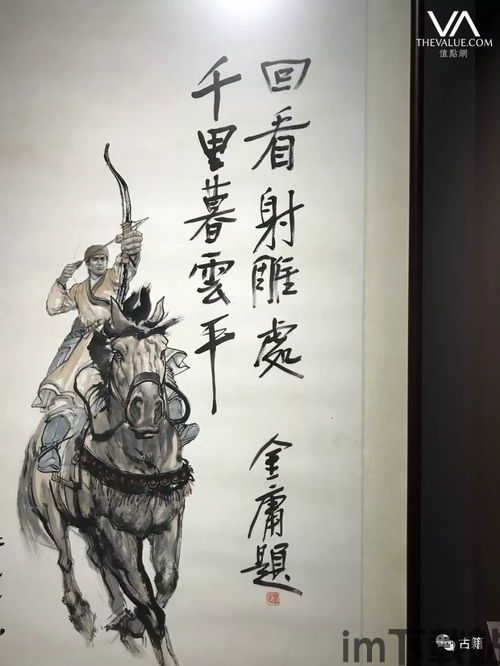 回看射雕處
千里暮雲平
金庸題
VA
THEVALUE.COM
值點網
古籍